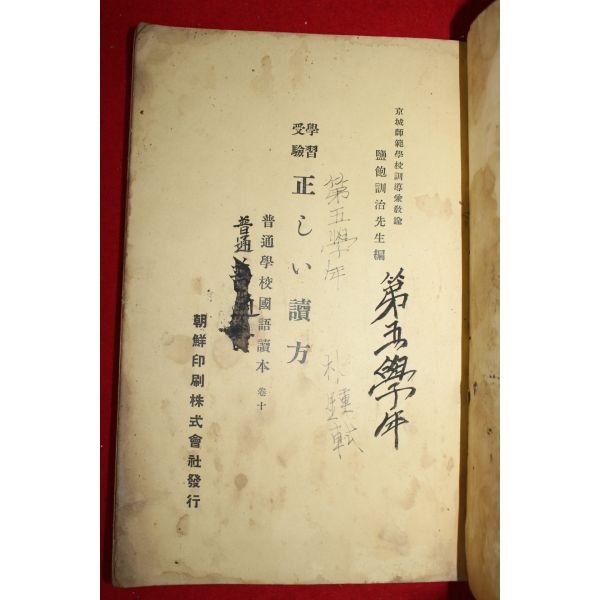 京城師範學校訓導兼敎諭
鹽飽訓治先生編
第五學年
第五學年
學習
受驗
正しい讀方
普通學校國語讀本 卷十
普通
朝鮮印刷株式會社發行